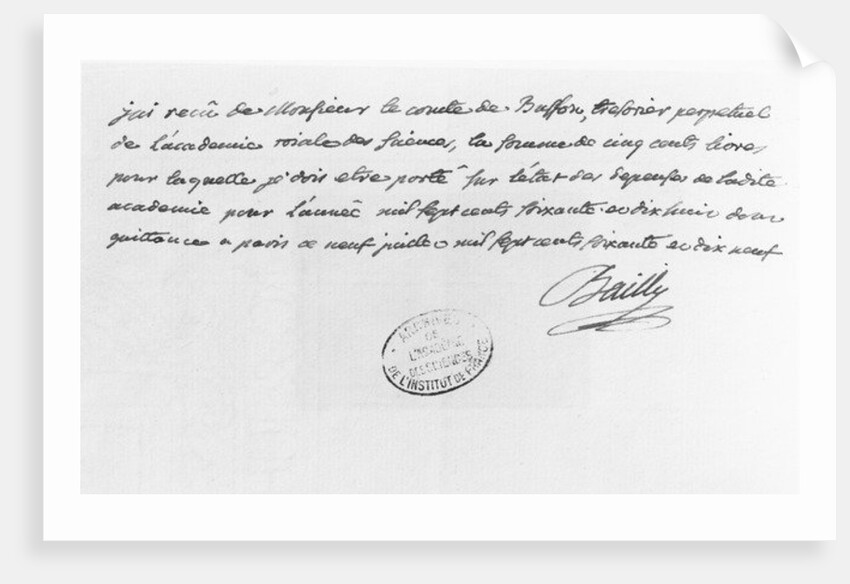 jai recu de Monsieur le comte de Buffon, tresorier perpetuel
de l'academie roiale des sciences, la somme de cinq cents livres,
pour laquelle je dois etre porté sur l'etat des depenses de ladite
academie pour l'année mil sept cents soixante et dix huit dont
quittance a paris ce neuf juillet mil sept cents soixante et dix neuf
Bailly
ARCHIVES
DE
L'ACADÉMIE
DES SCIENCES
DE L'INSTITUT DE FRANCE